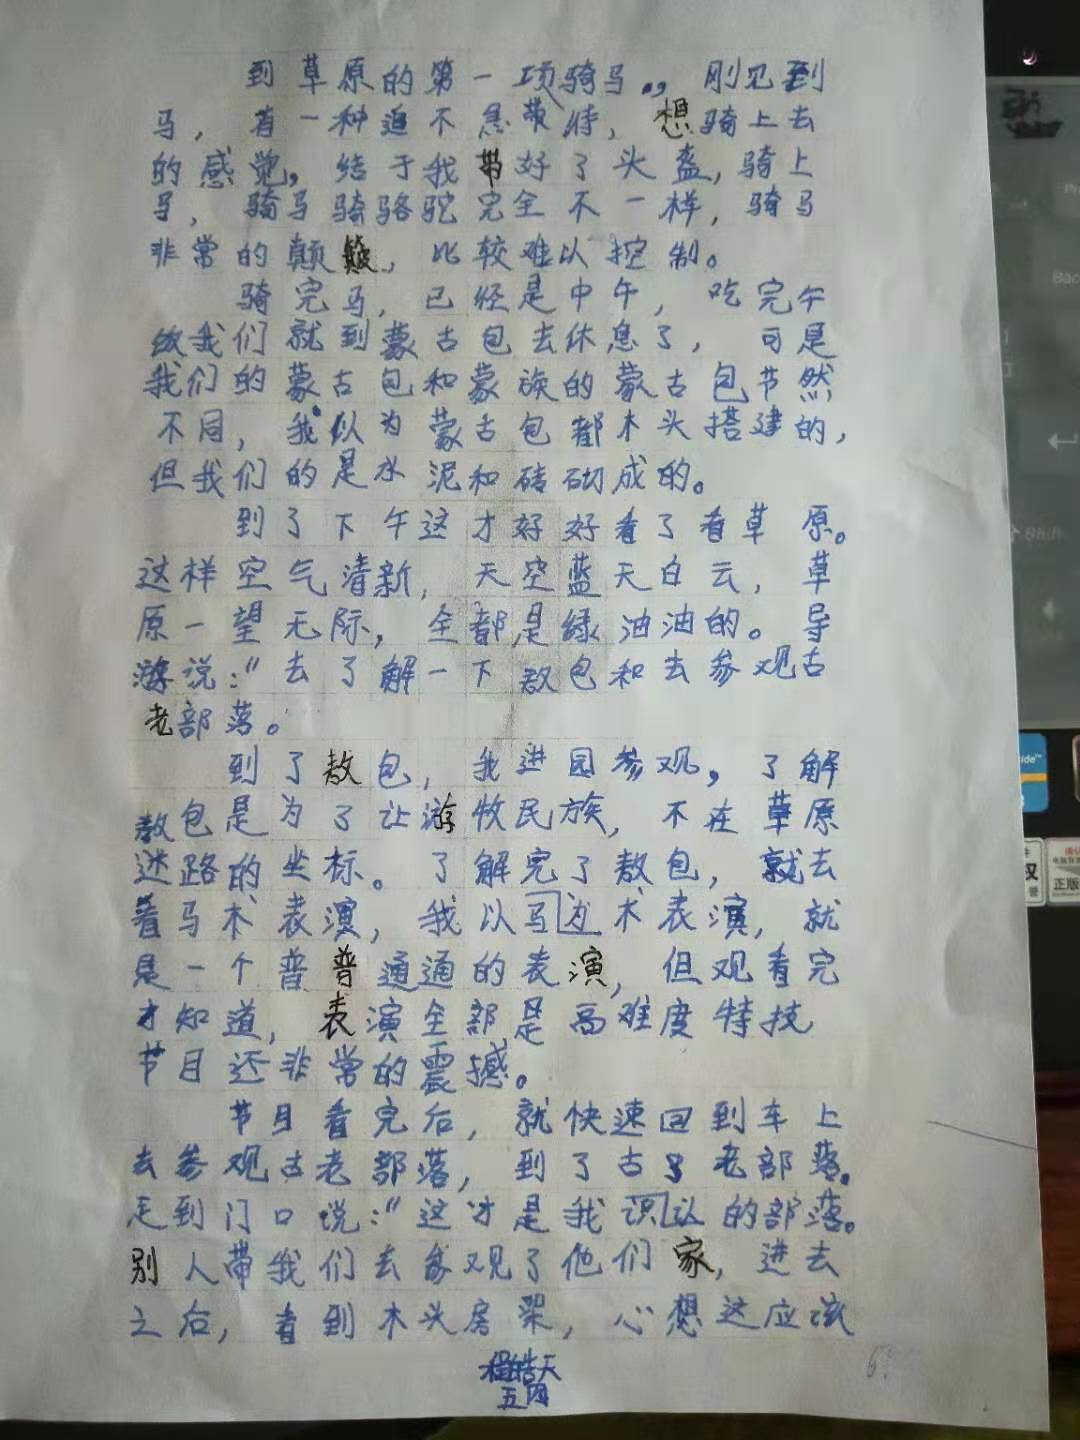 到草原的第一项骑马.，刚见到
马，有一种迫不急带待，想骑上去
的感觉，结于我带好了头盔，骑上
马，骑马骑骆驼完全不一样，骑马
非常的颠簸，比较难以控制。
骑完马，已经是中午，吃完午
我们就到蒙古包去休息了，可是
我们的蒙古包和蒙族的蒙古包节然
不同，我以为蒙古包都木头搭建的，
但我们的是水泥和砖砌成的。
到了下午这才好好看了看草原。
这样空气清新，天空蓝天白云，草
原一望无际，全都是绿油油的。导
游说：“去了解一下敖包和去参观古
老部落。
到了敖包，我进园参观，了解
敖包是为了让游牧民族，不在草原
迷路的坐标。了解完了敖包，就去
看马术表演，我以马为术表演，就
是一个普普通通的表演，但观看完
才知道，表演全部是高难度特技
节目还非常的震撼。
节目看完后，就快速回到车上
去参观古老部落，到了古老部落。
走到门口说：“这才是我识认的部落。
别人带我们去参观了他们家，进去
之后，看到木头房架，心想这应该
皓天
五四
Shift
正版